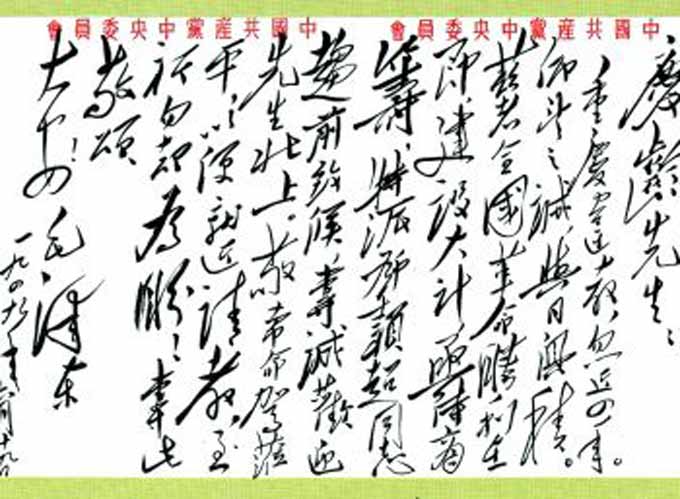 中國共産黨中央委員會
中國共産黨中央委員會
慶齡先生：
重慶違教，忽近四年。
仰望之誠，與日俱積。
兹者全國革命勝利在
即，建設大計，亟待商
籌，特派鄧穎超同志
趨前致候，專誠歡迎
先生北上。敬希命駕莅
平，以便就近請教，至
祈勿却為盼！專此
敬頌
大安！毛澤东
一九四九年六月十九日